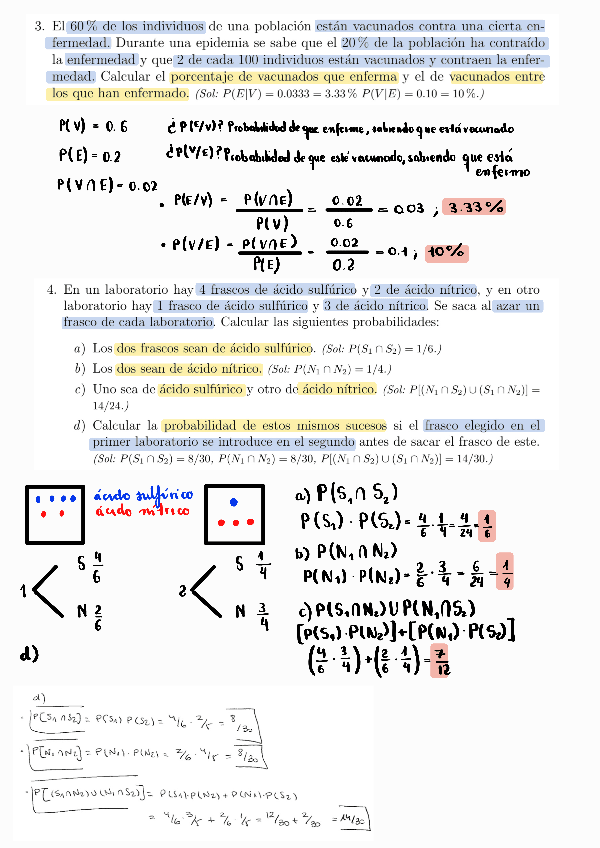 3. El 60 % de los individuos de una población están vacunados contra una cierta en-
fermedad. Durante una epidemia se sabe que el 20 % de la población ha contraído
la enfermedad y que 2 de cada 100 individuos están vacunados y contraen la enfer-
medad. Calcular el porcentaje de vacunados que enferma y el de vacunados entre
los que han enfermado. (Sol: P(E|V) = 0.0333 = 3.33 % P(V|E) = 0.10 = 10 %.)
P(V) = 0.6 ¿P(E/V)? Probabilidad de que enferme, sabiendo que está vacunado
P(E) = 0.2 ¿P(V/E)? Probabilidad de que esté vacunado, sabiendo que está
enfermo
P(V∩E) = 0.02
• P(E/V) = P(V∩E)/P(V) = 0.02/0.6 = 0.03 ; 3.33%
• P(V/E) = P(V∩E)/P(E) = 0.02/0.2 = 0.1 ; 10%
4. En un laboratorio hay 4 frascos de ácido sulfúrico y 2 de ácido nítrico, y en otro
laboratorio hay 1 frasco de ácido sulfúrico y 3 de ácido nítrico. Se saca al azar un
frasco de cada laboratorio. Calcular las siguientes probabilidades:
a) Los dos frascos sean de ácido sulfúrico. (Sol: P(S₁ ∩ S₂) = 1/6.)
b) Los dos sean de ácido nítrico. (Sol: P(N₁ ∩ N₂) = 1/4.)
c) Uno sea de ácido sulfúrico y otro de ácido nítrico. (Sol: P[(N₁ ∩ S₂) ∪ (S₁ ∩ N₂)] =
14/24.)
d) Calcular la probabilidad de estos mismos sucesos si el frasco elegido en el
primer laboratorio se introduce en el segundo antes de sacar el frasco de este.
(Sol: P(S₁ ∩ S₂) = 8/30, P(N₁ ∩ N₂) = 8/30, P[(N₁ ∩ S₂) ∪ (S₁ ∩ N₂)] = 14/30.)
ácido sulfúrico
ácido nítrico
1 S 4/6
N 2/6
2 S 1/4
N 3/4
a) P(S₁ ∩ S₂)
P(S₁) · P(S₂) = 4/6 · 1/4 = 4/24 = 1/6
b) P(N₁ ∩ N₂)
P(N₁) · P(N₂) = 2/6 · 3/4 = 6/24 = 1/4
c) P(S₁∩N₂) ∪ P(N₁∩S₂)
[P(S₁)·P(N₂)]+[P(N₁)·P(S₂)]
(4/6 · 3/4) + (2/6 · 1/4) = 7/12
d)
d)
• P[S₁ ∩ S₂] = P(S₁) · P(S₂) = 4/6 · 2/5 = 8/30
• P[N₁ ∩ N₂] = P(N₁) · P(N₂) = 2/6 · 4/5 = 8/30
• P[(S₁∩N₂)∪(N₁∩S₂)] = P(S₁)·P(N₂) + P(N₁)·P(S₂)
= 4/6 · 3/5 + 2/6 · 1/5 = 12/30 + 2/30 = 14/30